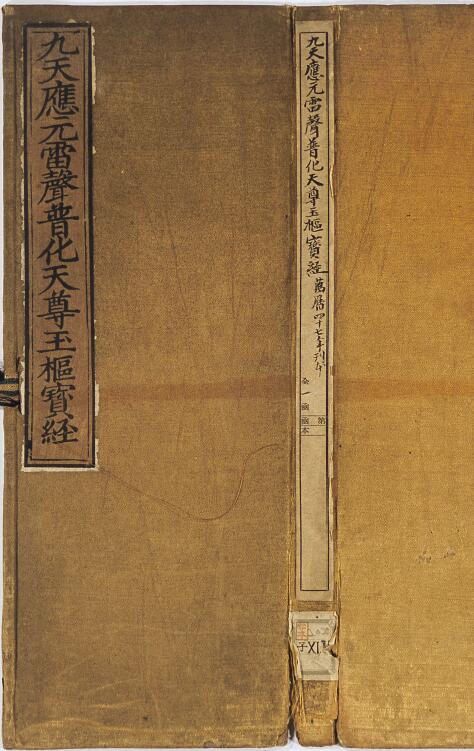 九天應元雷聲普化天尊玉樞寳経
九天應元雷聲普化天尊玉樞寳經
萬曆四十七年刊本
全一函
第
函本
子XI